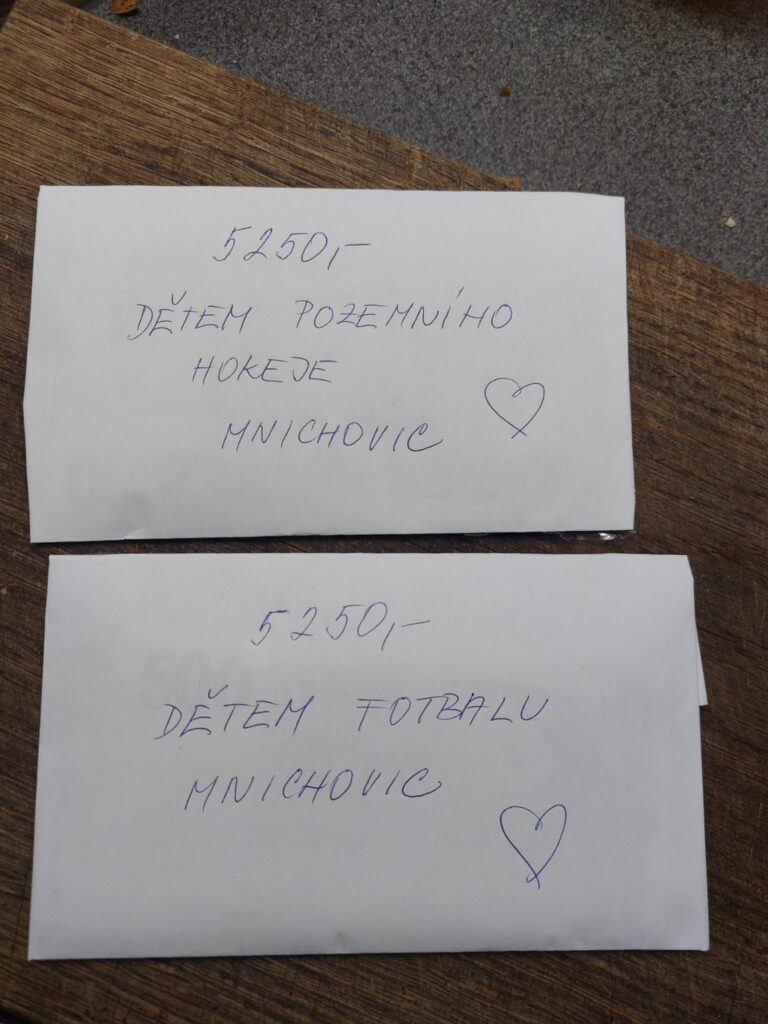 5250,-
DĚTEM POZEMNÍHO
HOKEJE
MNICHOVIC
5250,-
DĚTEM FOTBALU
MNICHOVIC